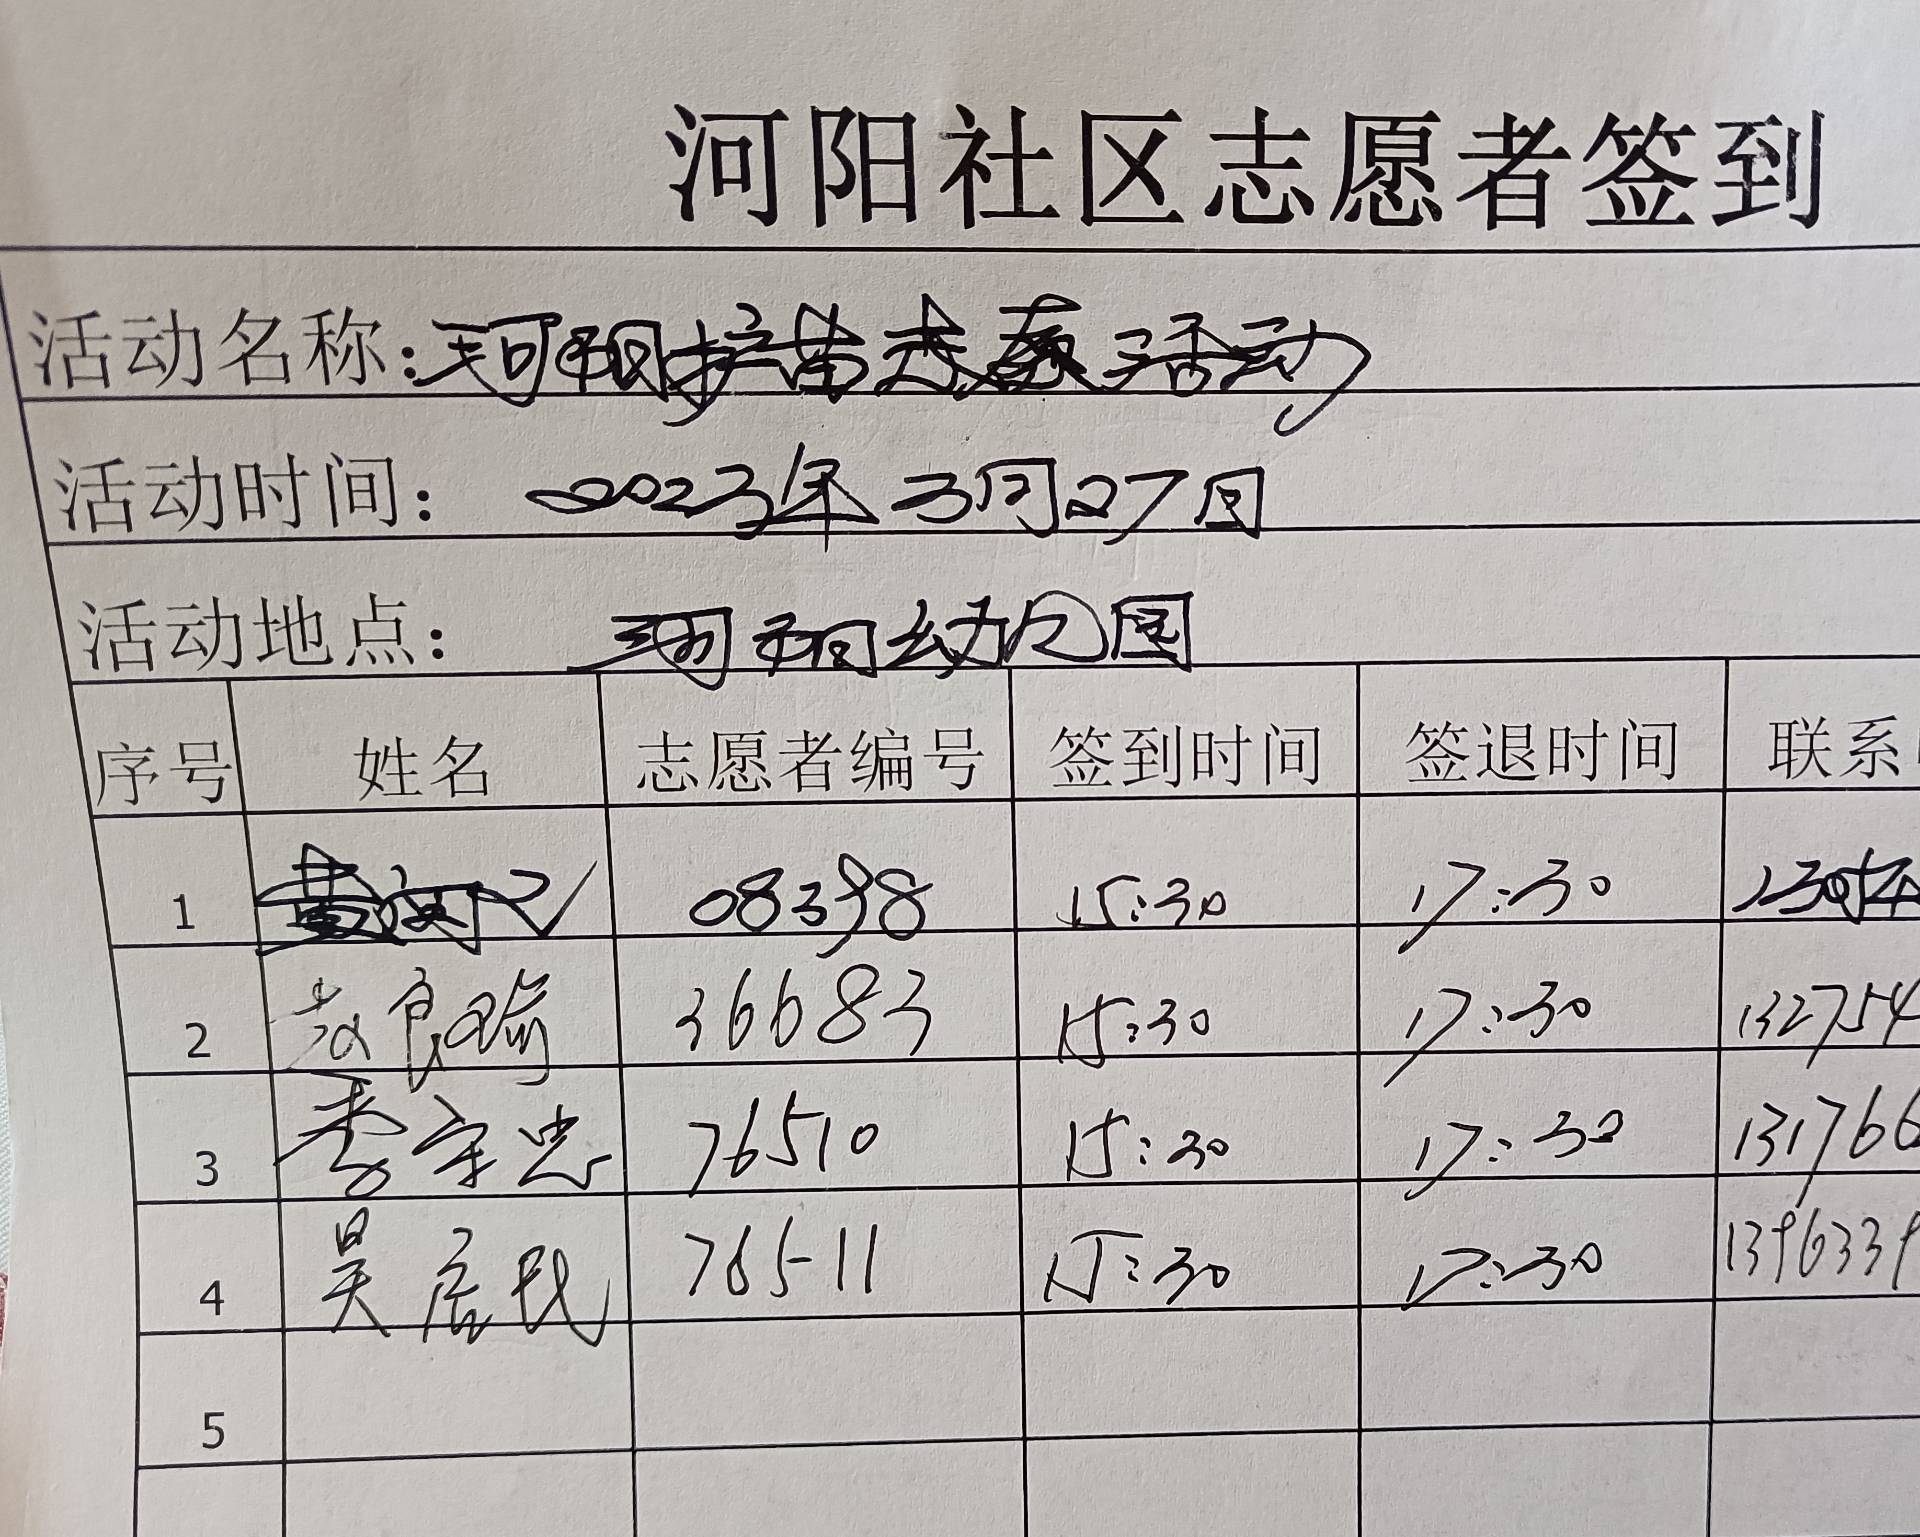 河阳社区志愿者签到
活动名称：河阳护苗志愿活动
活动时间： 2023年3月27日
活动地点： 河阳幼儿园
序号 姓名 志愿者编号 签到时间 签退时间 联系
1 08398 15:30 17:30
2 36683 15:30 17:30 132754
3 李守忠 76510 15:30 17:30 131766
4 吴启民 76511 15:30 17:30 1396339
5